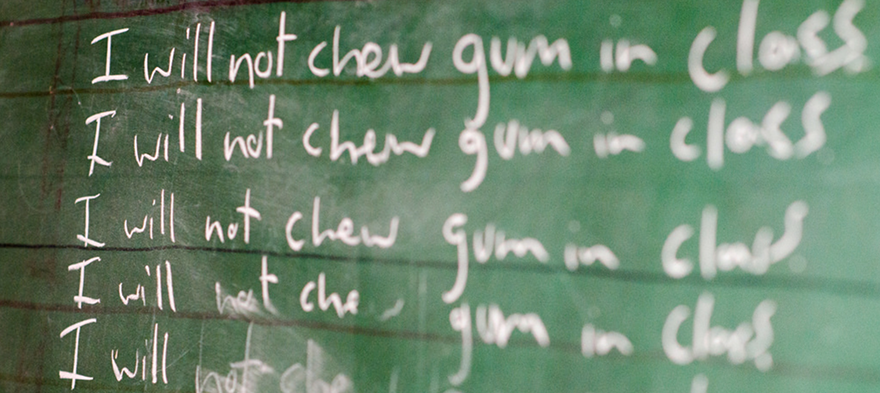 I will not chew gum in class
I will not chew gum in class
I will not chew gum in class
I will not che gum in class
I will not che